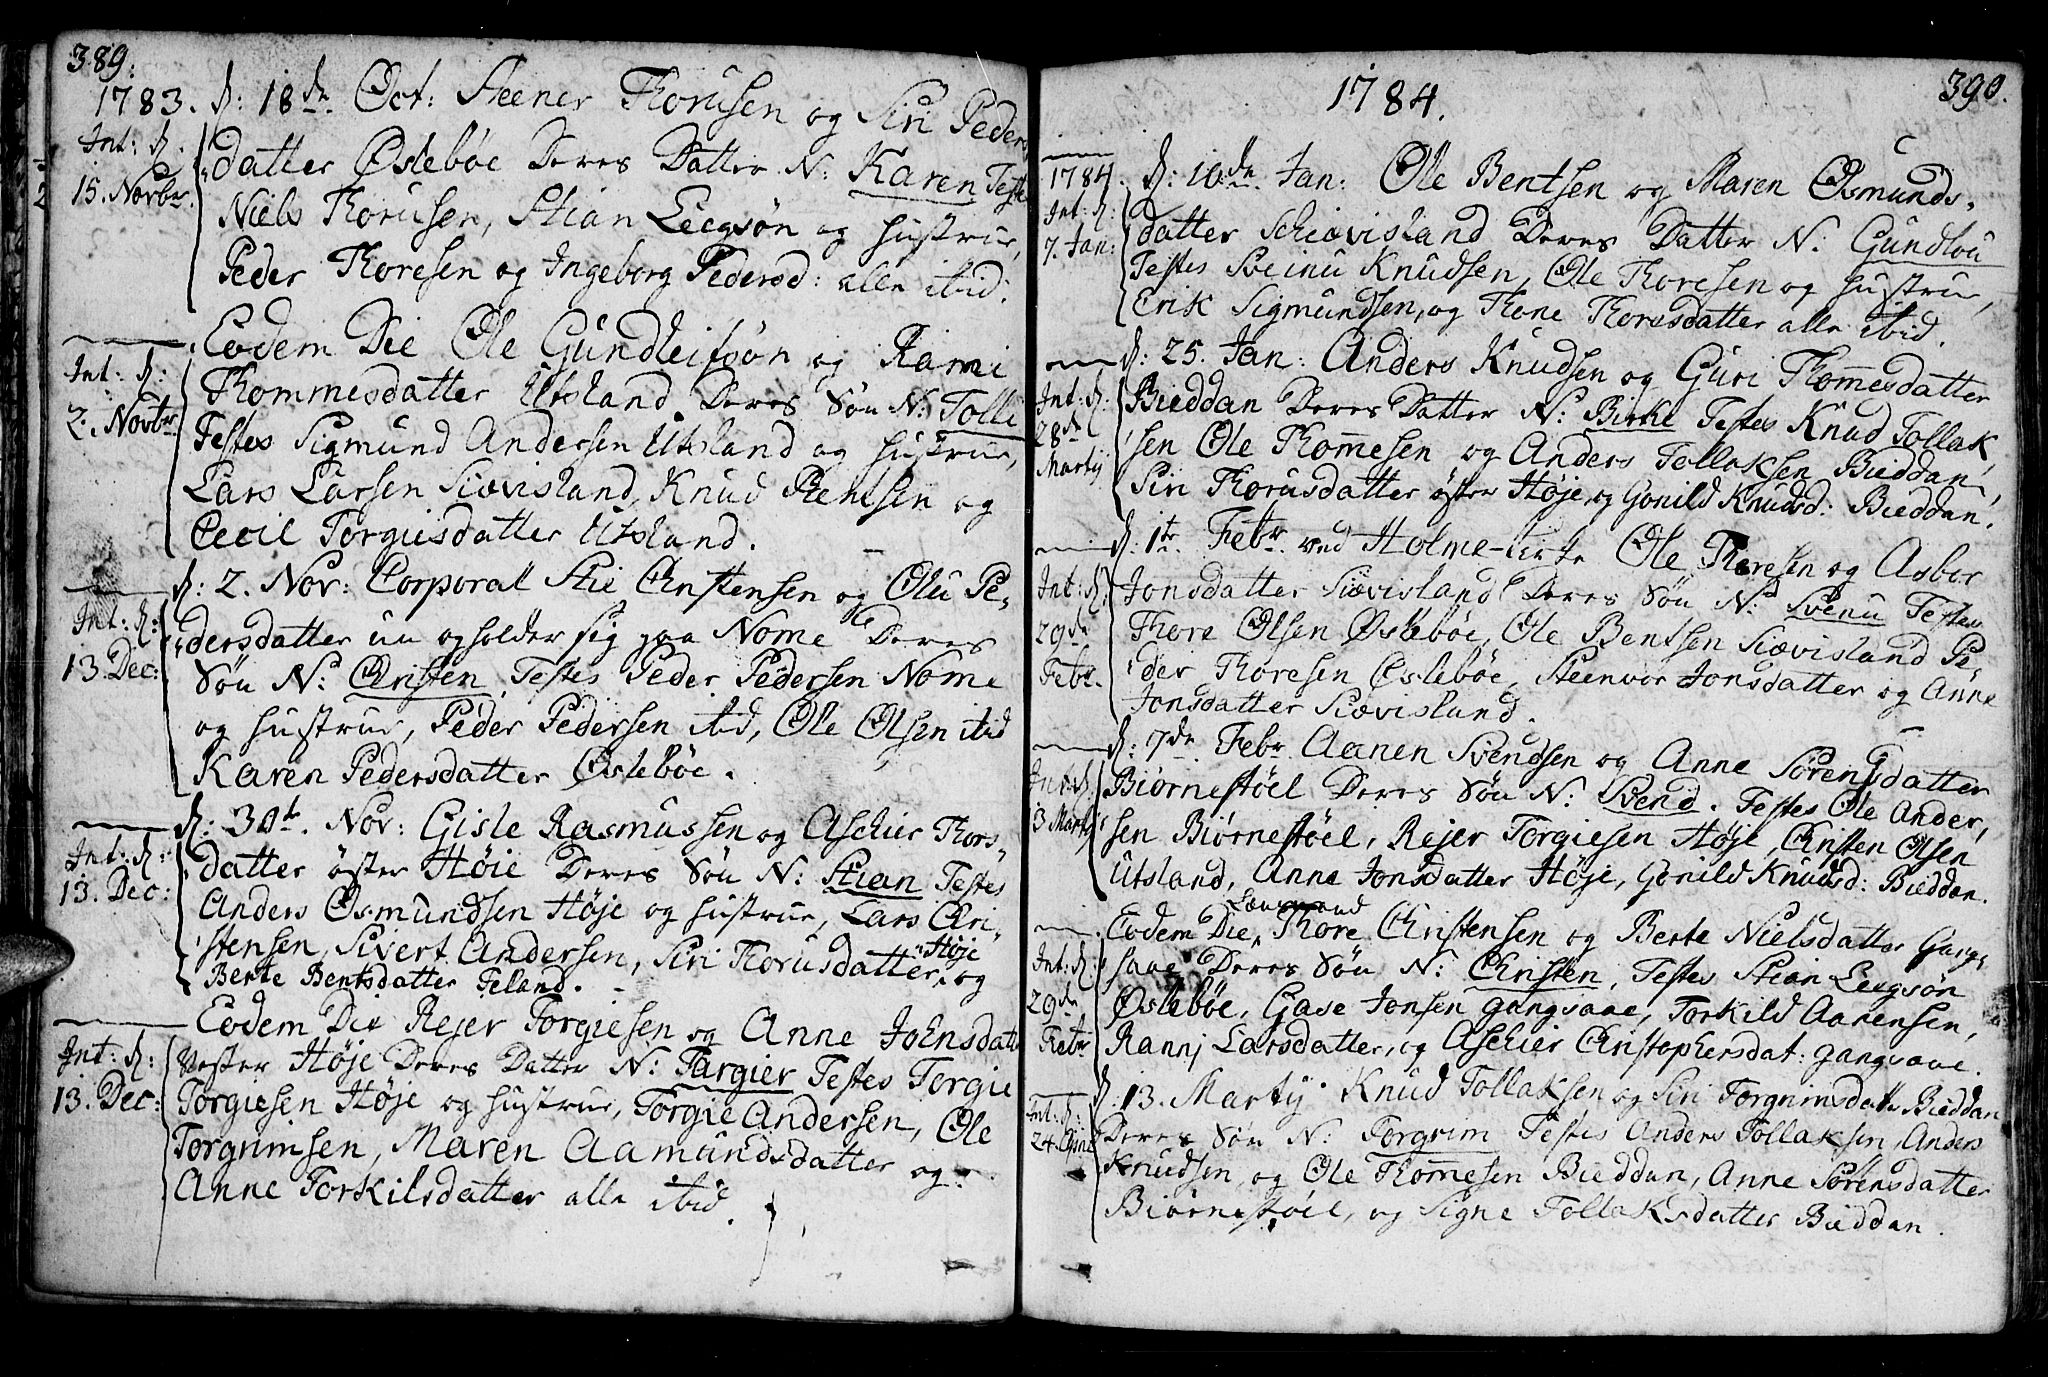 389.
1783. d: 18de Oct: Steener Thorusen og Siri Peders
Int: d. datter Øslebøe Deres Datter N: Karen Testes
15. Novbr. Niels Thorusen, Stian Leegsøn og hustrue,
Peder Thoresen og Ingeborg Pedersd: alle ibid.
Eodem Die Ole Gundleifsøn og Rami
Int: d: Thommesdatter Utsland. Deres Søn N: Tolli
2. Novbr. Testes Sigmund Andersen Utsland og hustrue,
Lars Larsen Siævisland, Knud Bentsen og
Cecil Torgiesdatter Utsland.
d: 2. Nov: Corporal Stie Christensen og Olu Pe-
Int: d: dersdatter opholder sig paa Nome Deres
13. Dec: Søn N: Christen Testes Peder Pedersen Nome
og hustrue, Peder Pedersen ibid, Ole Olsen ibid
Karen Pedersdatter Øslebøe.
d: 30te. Nov: Gisle Rasmussen og Aschier Thors-
Int: d: datter øster Høie Deres Søn N: Stian Testes
13. Dec: Anders Osmundsen Høje og hustrue, Lars Chri-
stensen, Sivert Andersen, Siri Thorusdatter Høje, og
Berte Bentsdatter Feland.
Eodem Die Rejer Torgiesen og Anne Johnsdatt
Int: d: Vester Høje Deres Datter N: Targier Testes Torgie
13. Dec: Torgiesen Høje og hustrue, Torgie Andersen, Ole
Torgrimsen, Maren Aamundsdatter og
Anne Torkilsdatter alle ibid.
390.
1784.
1784. d: 10de Jan: Ole Bentsen og Maren Osmunds-
Int: d: datter Schiævisland Deres Datter N: Gundlou
7. Jan: Testes Sveinu Knudsen, Ole Thoresen og hustrue,
Erik Sigmundsen, og Thone Thoresdatter alle ibid.
d: 25. Jan: Anders Knudsen og Guri Thomesdatter
Int: d: Bieddan Deres Datter N: Birke Testes Knud Tollak
28de sen Ole Thomesen og Anders Tollaksen Bieddan,
Martij Siri Thorusdatter øster Høje, og Gonild Knudsd: Bieddan.
d: 1te. Febr. ved Holme-kirke Ole Thoresen og Asbor
Int: d: Jonsdatter Siævisland Deres Søn N: Svenu Testes
29de Thore Olsen Øslebøe, Ole Bentsen Siævisland Pe-
Febr. der Thoresen Øslebøe, Steenvor Jonsdatter og Anne
Jonsdatter Siævisland.
d: 7de. Febr Aanen Svendsen og Anne Sørensdatter
Int: d. Biørnestøel Deres Søn N: Svend. Testes Ole Ander,
13 Martij sen Biørnestøel, Rejer Torgiesen Høje, Christen Olsen
Utsland, Anne Jonsdatter Høje, Gonild Knudsd: Bieddan.
Eodem Die, Lænsmand Thore Christensen og Berte Nielsdatter Gang-
Int: d: saae Deres Søn N: Christen, Testes Stian Leegsøn
29de Øslebøe, Gase Jonsen gangsaae, Torkild Aanensen,
Febr Rannj Larsdatter, og Aschier Christophersdat: gangsaae.
d: 13. Martij Knud Tollaksen og Siri Torgrimsdatt Bieddan
Int: d: Deres Søn N: Torgrim Testes Anders Tollaksen, Anders
24. Knudsen, og Ole Thomesen Bieddan, Anne Sørensdatter
Biørnestøel, og Signe Tollaksdatter Bieddan.